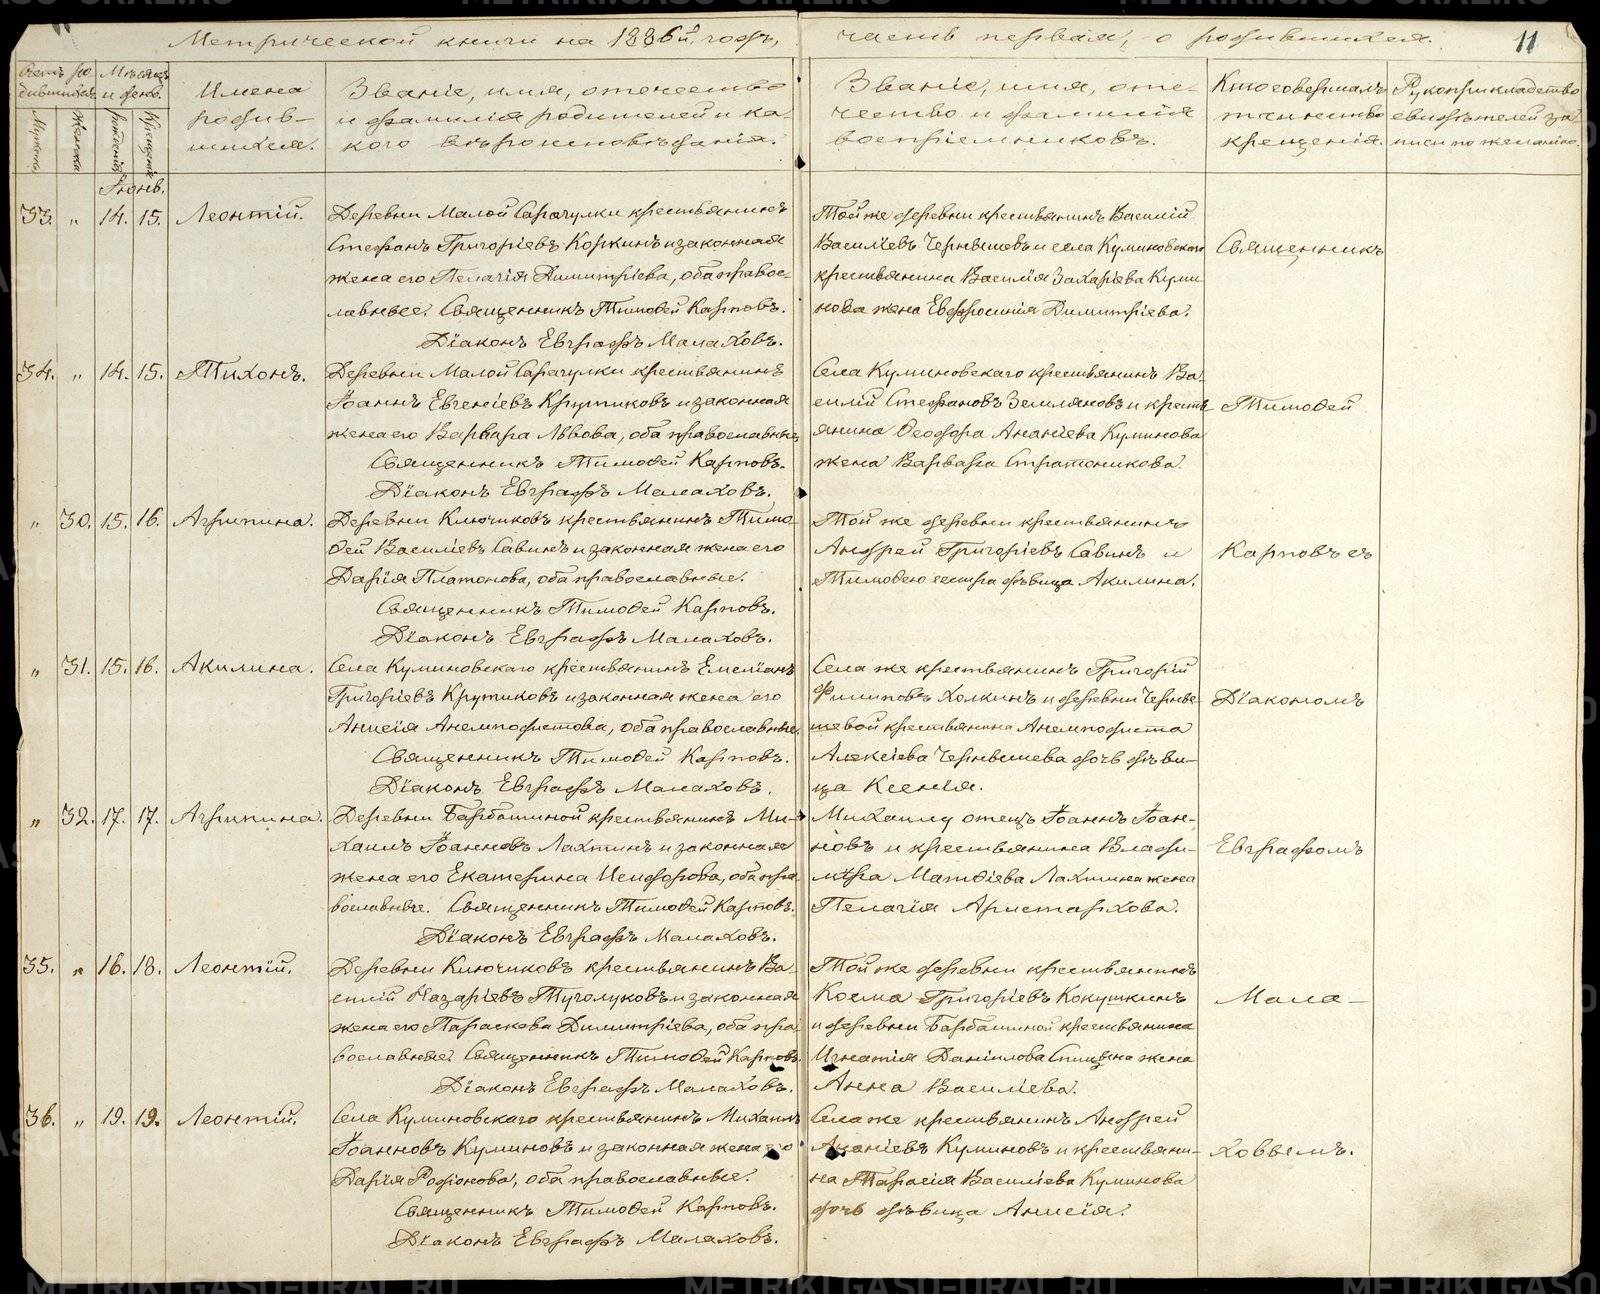 Метрической книги на 1886й годъ,
часть первая, о родившихся.
11
Счетъ ро
дившихся
Мѣсяцъ
и день.
Мужеска
Женска
Рожденія
Крещенія
Имена
родив-
шихся.
Званіе, имя, отечество
и фамилія родителей и ка-
кого вѣроисповѣданія.
Званіе, имя, оте-
чество и фамилія
воспріемниковъ.
Кто совершалъ
таинство
крещенія.
Рукоприкладство
свидѣтелей за
писи по желанію.
Іюнь.
33. „ 14. 15. Леонтій.
Деревни Малой Сарачулки крестьянинъ
Стефанъ Григоріевъ Коркинъ и законная
жена его Пелагія Димитріева, оба правос-
лавные. Священникъ Тимоѳей Карповъ.
Діаконъ Евграфъ Малаховъ.
Той же деревни крестьянинъ Василій
Василіевъ Чернышевъ и села Куминовскаго
крестьянина Василія Захаріева Куми
нова жена Евфросинія Димитріева.
Священникъ
34. „ 14. 15. Тихонъ.
Деревни Малой Сарачулки крестьянинъ
Іоаннъ Евгеніевъ Крутиковъ и законная
жена его Варвара Львова, оба православные.
Священникъ Тимоѳей Карповъ.
Діаконъ Евграфъ Малаховъ.
Села Куминовскаго крестьянинъ Ва-
силій Стефановъ Земляновъ и кресть-
янина Ѳеодора Ананіева Куминова
жена Варвара Стратоникова.
Тимоѳей
„ 30. 15. 16. Агрипина.
Деревни Ключиковъ крестьянинъ Тимо-
ѳей Василіевъ Савинъ и законная жена его
Дарія Платонова, оба православные.
Священникъ Тимоѳей Карповъ.
Діаконъ Евграфъ Малаховъ.
Той же деревни крестьянинъ
Андрей Григоріевъ Савинъ и
Тимоѳею сестра дѣвица Акилина.
Карповъ съ
„ 31. 15. 16. Акилина.
Села Куминовскаго крестьянинъ Емеліанъ
Григоріевъ Крутиковъ и законная жена его
Анисія Анемподистова, оба православные.
Священникъ Тимоѳей Карповъ.
Діаконъ Евграфъ Малаховъ.
Села же крестьянинъ Григорій
Филиповъ Холкинъ и деревни Черны-
шевой крестьянина Анемподиста
Алексіева Чернышева дочь дѣви-
ца Ксенія.
Діакономъ
„ 32. 17. 17. Агрипина.
Деревни Барбашиной крестьянинъ Ми-
хаилъ Іоанновъ Лахтинъ и законная
жена его Екатерина Исидорова, оба пра-
вославные. Священникъ Тимоѳей Карповъ.
Діаконъ Евграфъ Малаховъ.
Михаилу отецъ Іоаннъ Іоан-
новъ и крестьянина Влади-
міра Матѳіева Лахтина жена
Пелагія Аристархова.
Евграфомъ
35. „ 16. 18. Леонтій.
Деревни Ключиковъ крестьянинъ Ва-
силій Назаріевъ Туголуковъ и законная
жена его Параскева Димитріева, оба пра
вославные. Священникъ Тимоѳей Карповъ.
Діаконъ Евграфъ Малаховъ.
Той же деревни крестьянинъ
Косма Григоріевъ Кокушкинъ
и деревни Барбашиной крестьянина
Игнатія Даніилова Спицына жена
Анна Василіева.
Мала-
36. „ 19. 19. Леонтій.
Села Куминовскаго крестьянинъ Михаилъ
Іоанновъ Куминовъ и законная жена его
Дарія Родіонова, оба православные.
Священникъ Тимоѳей Карповъ.
Діаконъ Евграфъ Малаховъ.
Села же крестьянинъ Андрей
Ананіевъ Куминовъ и крестьяни-
на Тарасія Василіева Куминова
дочь дѣвица Анисія.
ховымъ.